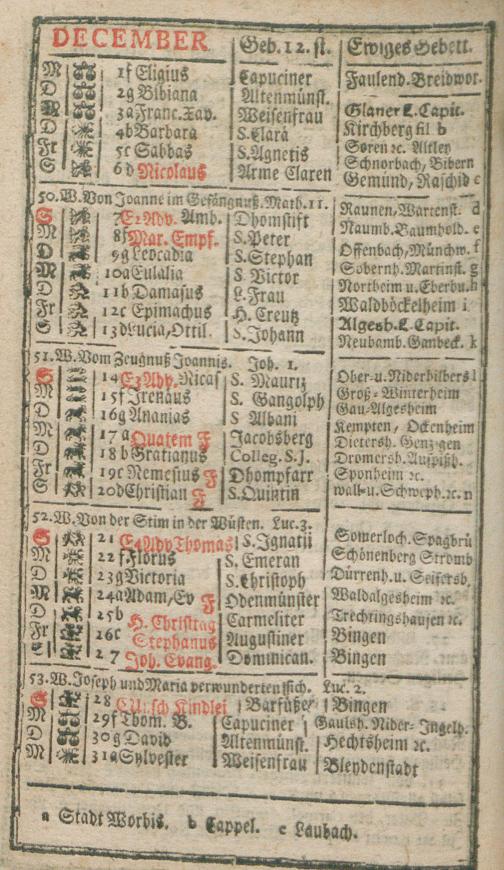 DECEMBER Geb. 12. st. Ewiges Gebett.
M 1 f Eligius Capuciner Faulend. Breidwor.
D 2 g Bibiana Altenmünst.
M 3 a Franc. Xav. Weisenfrau Glaner L. Capit.
D 4 b Barbara S. Clara Kirchberg fil b
Fr 5 c Sabbas S. Agnetis Soren ꝛc. Altley
S 6 d Nicolaus Arme Claren Schnorbach, Bibern
Gemünd, Raschid c
50. W. Von Joanne im Gefängnuß. Math. 11.
S 7 E2 Adv. Amb. Dhomstift Raunen, Wartenst. d
M 8 f Mar. Empf. S. Peter Naumb. Baumhold. e
D 9 g Leocadia S. Stephan Offenbach, Münchw. f
M 10 a Eulalia S. Victor Sobernh. Martinst. g
D 11 b Damasus L. Frau Northeim u. Ebernb. h
Fr 12 c Epimachus H. Creutz Waldböckelheim i
S 13 d Lucia, Ottil. S. Johann Algesh. L. Capit.
Neubamb. Ganbeck. k
51. W. Vom Zeugnuß Joannis. Joh. 1.
S 14 E3 Adv. Nicas S. Mauriz Ober- u. Niderhilbers l
M 15 f Irenäus S. Gangolph Groß-Winterheim
D 16 g Ananias S Albani Gau-Algesheim
M 17 a Quatem F Jacobsberg Kempten, Ockenheim
D 18 b Gratianus Colleg. S. J. Dietersh. Genzgen
Fr 19 c Nemesius F Dhompfarr Dromersh. Aspißh.
S 20 d Christian F S. Quintin Sponheim ꝛc.
wall- u. Schweph. ꝛc. n
52. W. Von der Stim in der Wüsten. Luc. 3.
S 21 E4 Adv Thomas S. Ignatii Somerloch. Spagbrü
M 22 f Florus S. Emeran Schönenberg Stromb
D 23 g Victoria S. Christoph Dürrenh. u. Seifersb.
M 24 a Adam, Ev F Odenmünster Waldalgesheim ꝛc.
D 25 b H. Christtag Carmeliter Trechringshausen ꝛc.
Fr 26 c Stephanus Augustiner Bingen
S 27 Joh. Evang. Dominican. Bingen
53. W. Joseph und Maria verwunderten sich. Luc. 2.
S 28 Kindlei Barfüßer Bingen
M 29 f Thom. B. Capuciner Gaulsh. Nider-Ingelh.
D 30 g David Altenmünst. Hechtsheim ꝛc.
M 31 a Sylvester Weisenfrau Bleydenstadt
a Stadt Worbis. b Cappel. c Laubach.